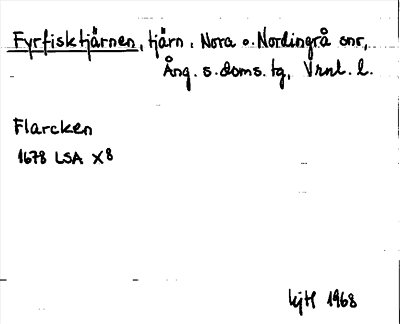 Fyrfisktjärnen, tjärn, Nora o. Nordingrå snr,
Ång. s. doms. tg, Vrnl. l.
Flarcken
1678 LSA X8
1968